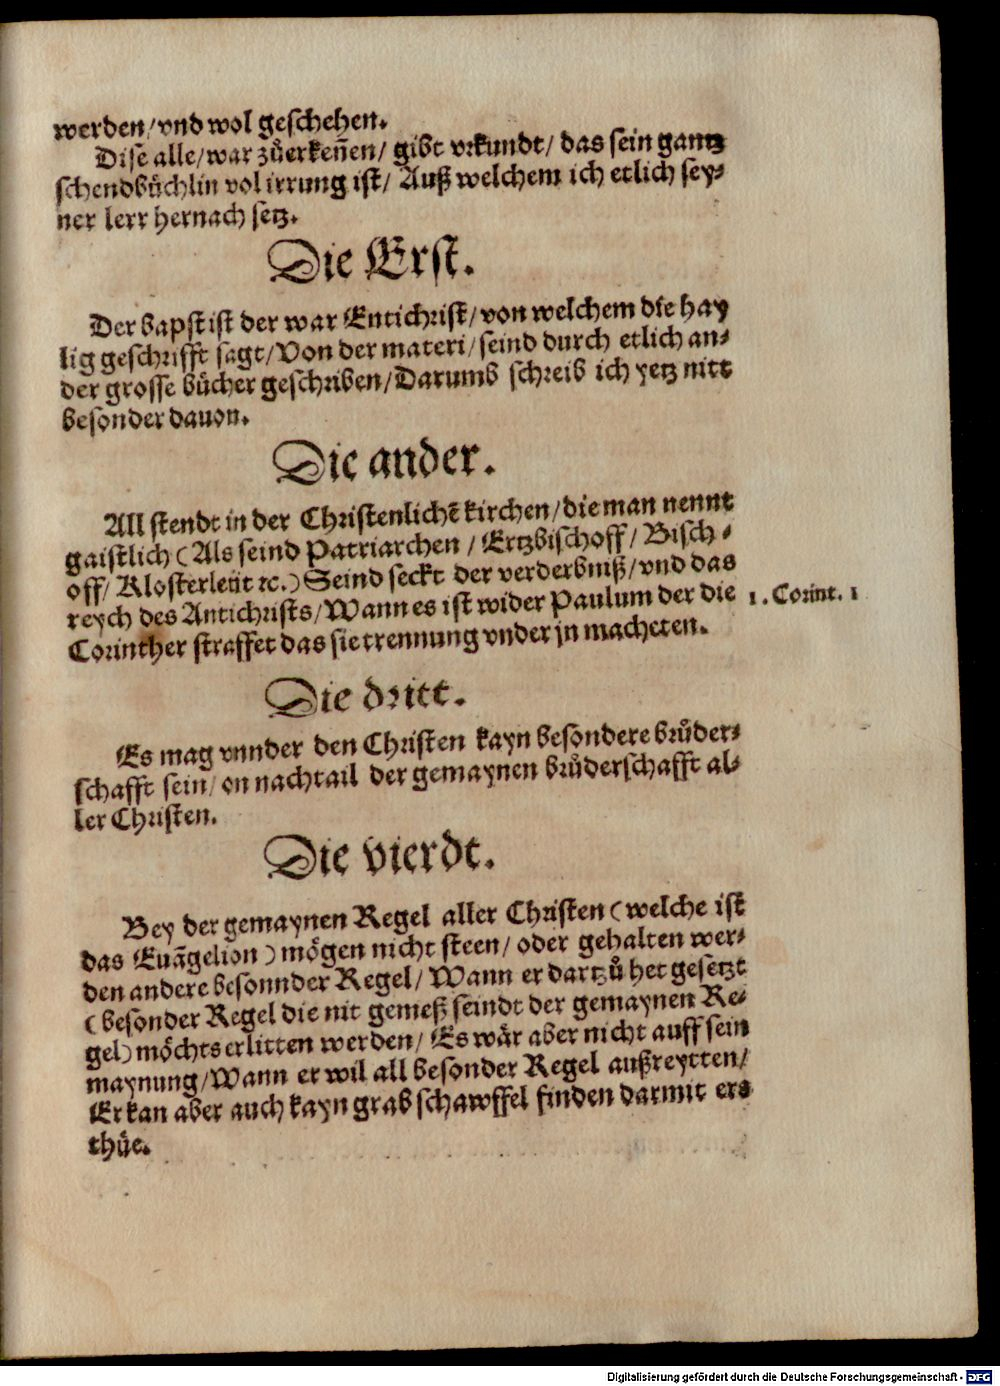 werden/vnd wol geschehen.
Dise alle/war zůerkeñen/ gibt vrkundt/ das sein gantz
schendbüchlin vol irrung ist/ Auß welchem ich etlich sey-
ner lerr hernach setz.
Die Erst.
Der bapst ist der war Entichrist/von welchem die hay
lig geschrifft sagt/Von der materi/seind durch etlich an-
der grosse bücher geschriben/Darumb schreib ich yetz nitt
besonder dauon.
Die ander.
All stendt in der Christenlichē kirchen/die man nennt
gaistlich (Als seind Patriarchen / Ertzbischoff/ Bisch-
off/ Klosterleüt ꝛc.) Seind seckt der verderbniß/vnd das
reych des Antichrists/Wann es ist wider Paulum der die
Corinther straffet das sie trennung vnder jn macheten.
1. Corint. 1
Die dritt.
Es mag vnnder den Christen kayn besondere brůder-
schafft sein/on nachtail der gemaynen brůderschafft al-
ler Christen.
Die vierdt.
Bey der gemaynen Regel aller Christen (welche ist
das Euāgelion) mögen nicht steen/ oder gehalten wer-
den andere besonnder Regel/ Wann er dartzů het gesetzt
(besonder Regel die nit gemeß seindt der gemaynen Re-
gel) möchts erlitten werden/ Es wär aber nicht auff sein
maynung/Wann er wil all besonder Regel außreytten/
Er kan aber auch kayn grab schawffel finden darmit ers
thüe.
Digitalisierung gefördert durch die Deutsche Forschungsgemeinschaft - DFG